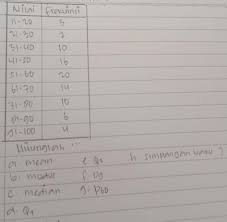 Nilai Frekuensi
11-20 3
21-30 7
31-40 10
41-50 16
51-60 20
61-70 14
71-80 10
81-90 6
91-100 4
Hitunglah :
a. mean e. Q3 h. simpangan baku ?
b. modus f. D9
c. median g. P60
d. Q1